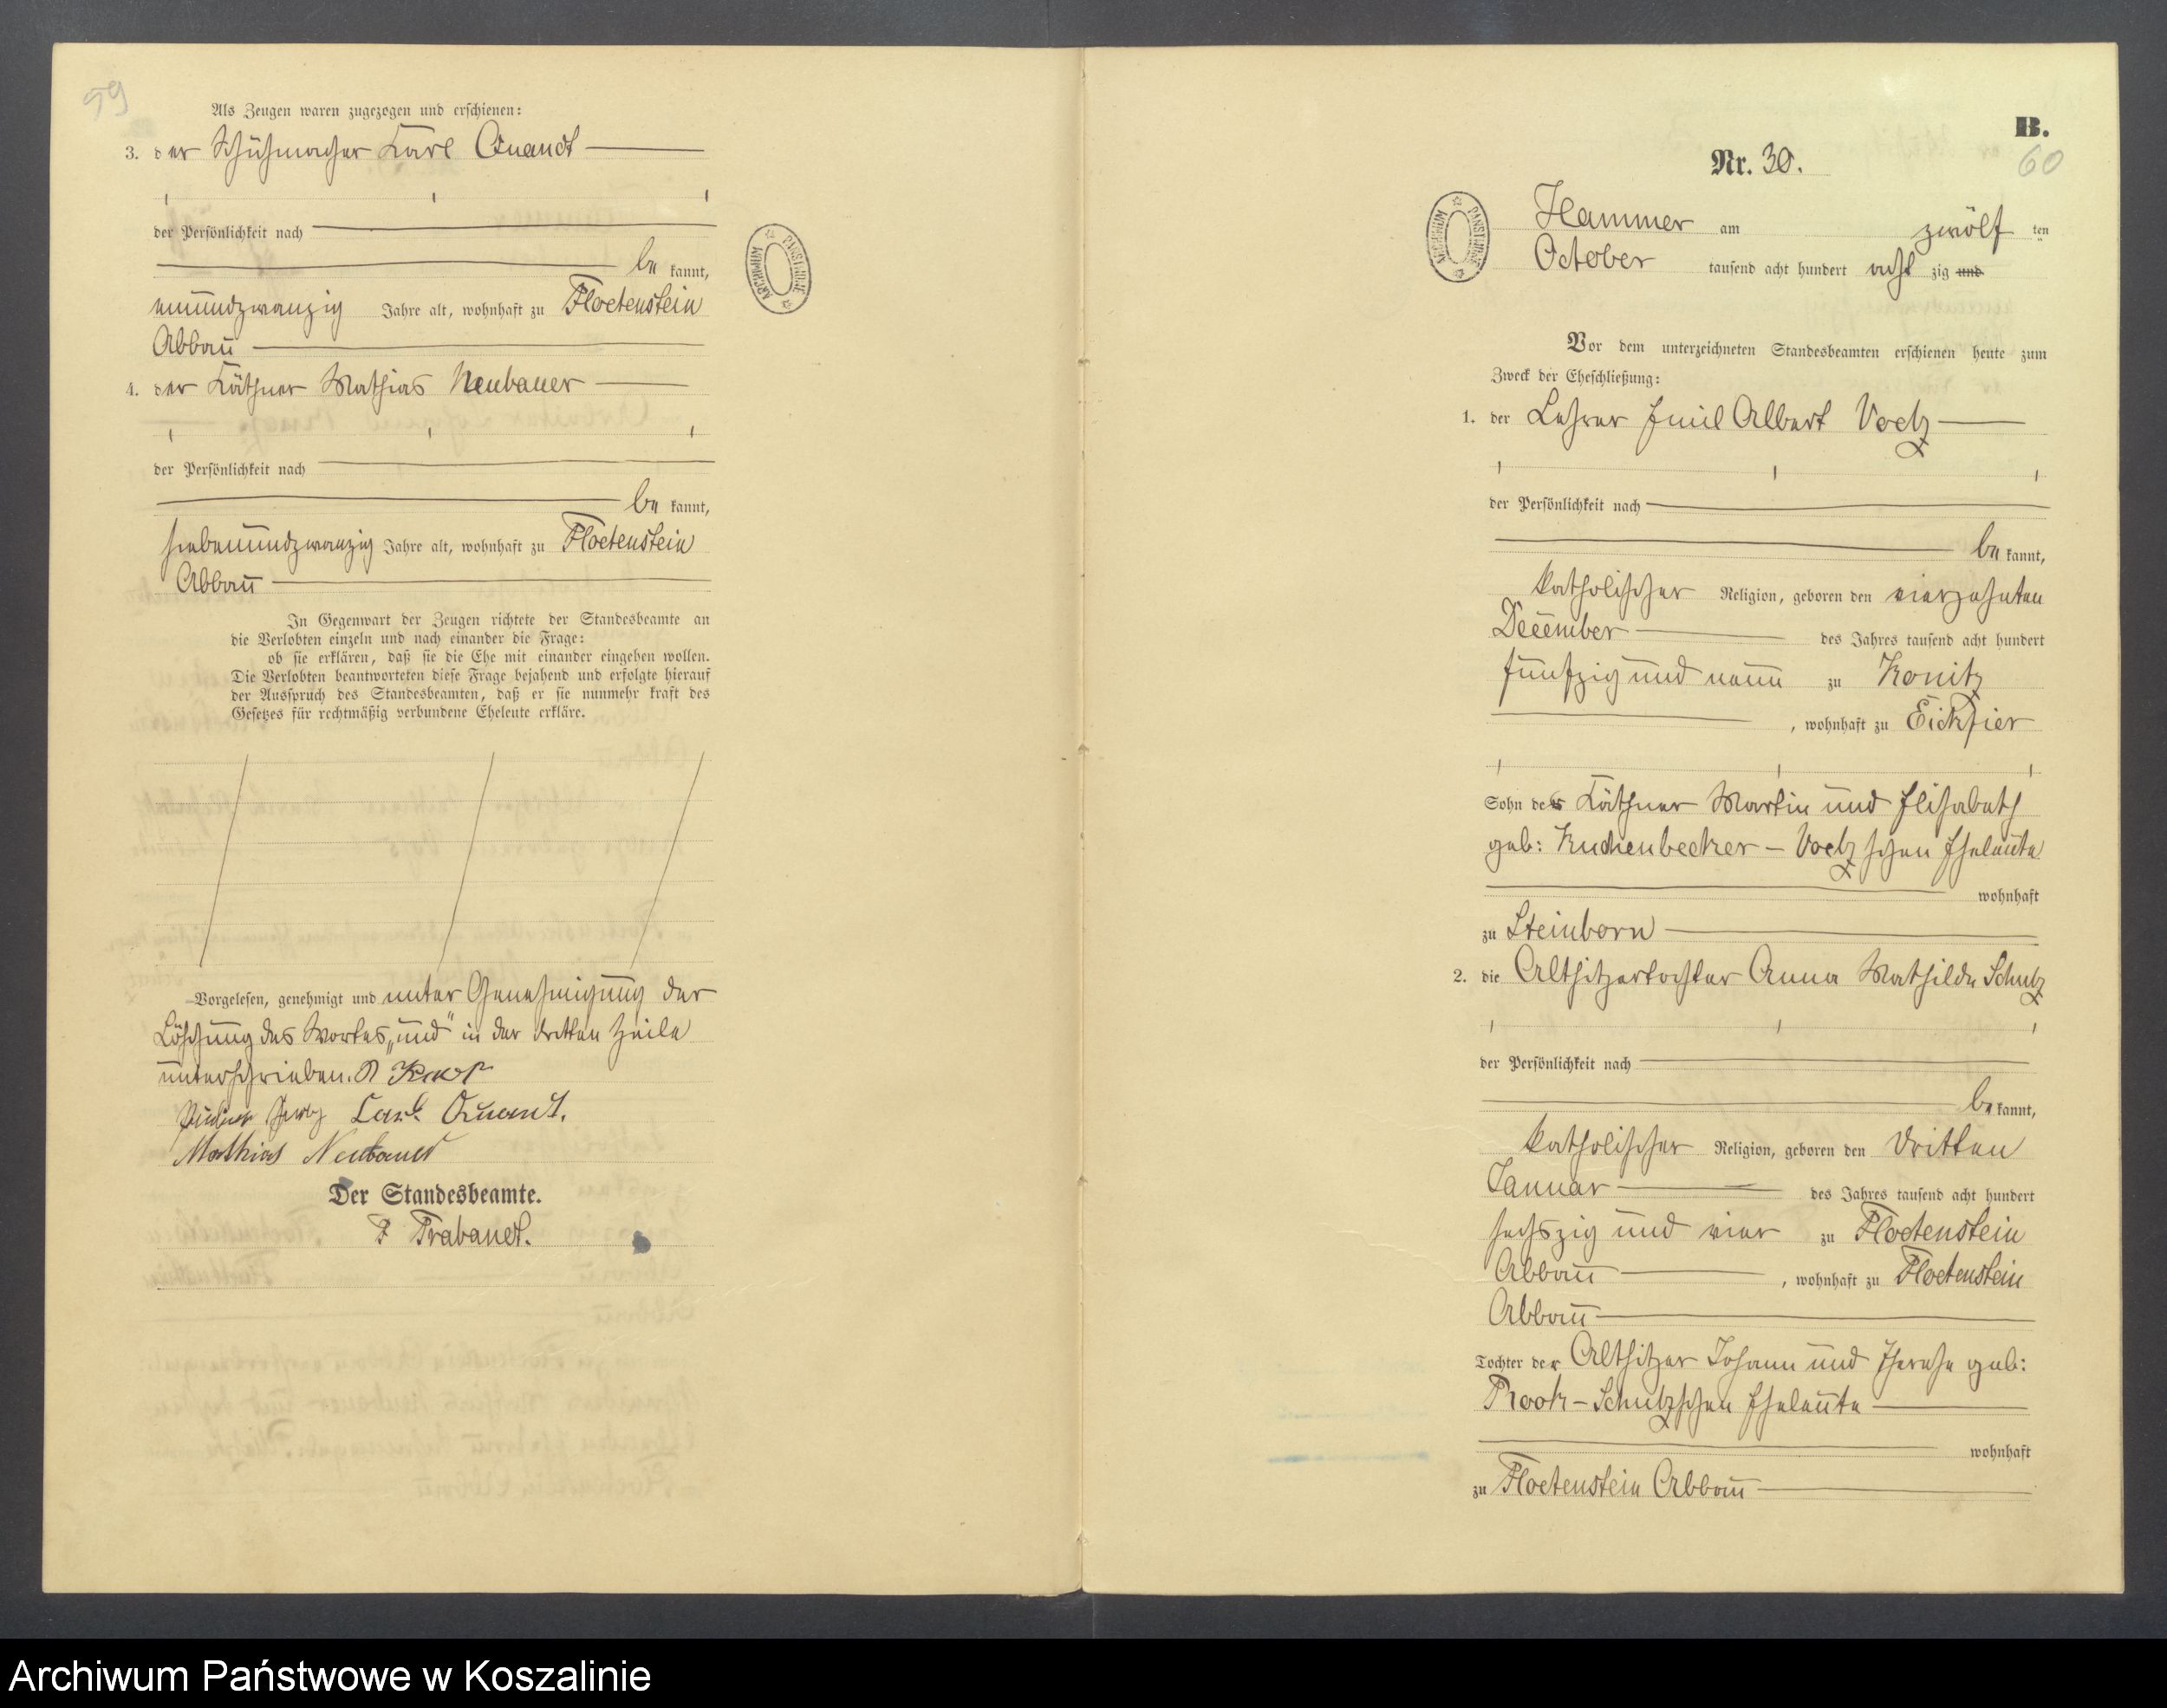 59
Als Zeugen waren zugezogen und erschienen:
3. der Schuhmacher Karl Quandt
der Persönlichkeit nach
be kannt,
neunundzwanzig Jahre alt, wohnhaft zu Floetenstein
Abbau
4. der Käthner Mathias Neubauer
der Persönlichkeit nach
be kannt,
siebenundzwanzig Jahre alt, wohnhaft zu Floetenstein
Abbau
In Gegenwart der Zeugen richtete der Standesbeamte an
die Verlobten einzeln und nach einander die Frage:
ob sie erklären, daß sie die Ehe mit einander eingehen wollen.
Die Verlobten beantworteten diese Frage bejahend und erfolgte hierauf
der Ausspruch des Standesbeamten, daß er sie nunmehr kraft des
Gesetzes für rechtmäßig verbundene Eheleute erkläre.
Vorgelesen, genehmigt und unter Genehmigung der
Löschung des Wortes „und“ in der dritten Zeile
unterschrieben.
Carl Quandt.
Mathias Neubauer
Der Standesbeamte.
Trabandt.
ARCHIWUM PAŃSTWOWE
B.
60
Nr. 30.
ARCHIWUM PAŃSTWOWE
Hammer am zwölf ten
October tausend acht hundert acht zig und
Vor dem unterzeichneten Standesbeamten erschienen heute zum
Zweck der Eheschließung:
1. der Lehrer Emil Albert Voelz
der Persönlichkeit nach
be kannt,
katholischer Religion, geboren den vierzehnten
December des Jahres tausend acht hundert
fünfzig und neun zu Konitz
, wohnhaft zu Eickfier
Sohn der Käthner Martin und Elisabeth
geb: Kuchenbecker – Voelz schen Eheleute
wohnhaft
zu Steinborn
2. die Altsitzertochter Anna Mathilde Schulz
der Persönlichkeit nach
be kannt,
katholischer Religion, geboren den dritten
Januar des Jahres tausend acht hundert
sechszig und vier zu Floetenstein
Abbau , wohnhaft zu Floetenstein
Abbau
Tochter der Altsitzer Johann und Therese geb:
Rook – Schulzschen Eheleute
wohnhaft
zu Floetenstein Abbau
Archiwum Państwowe w Koszalinie